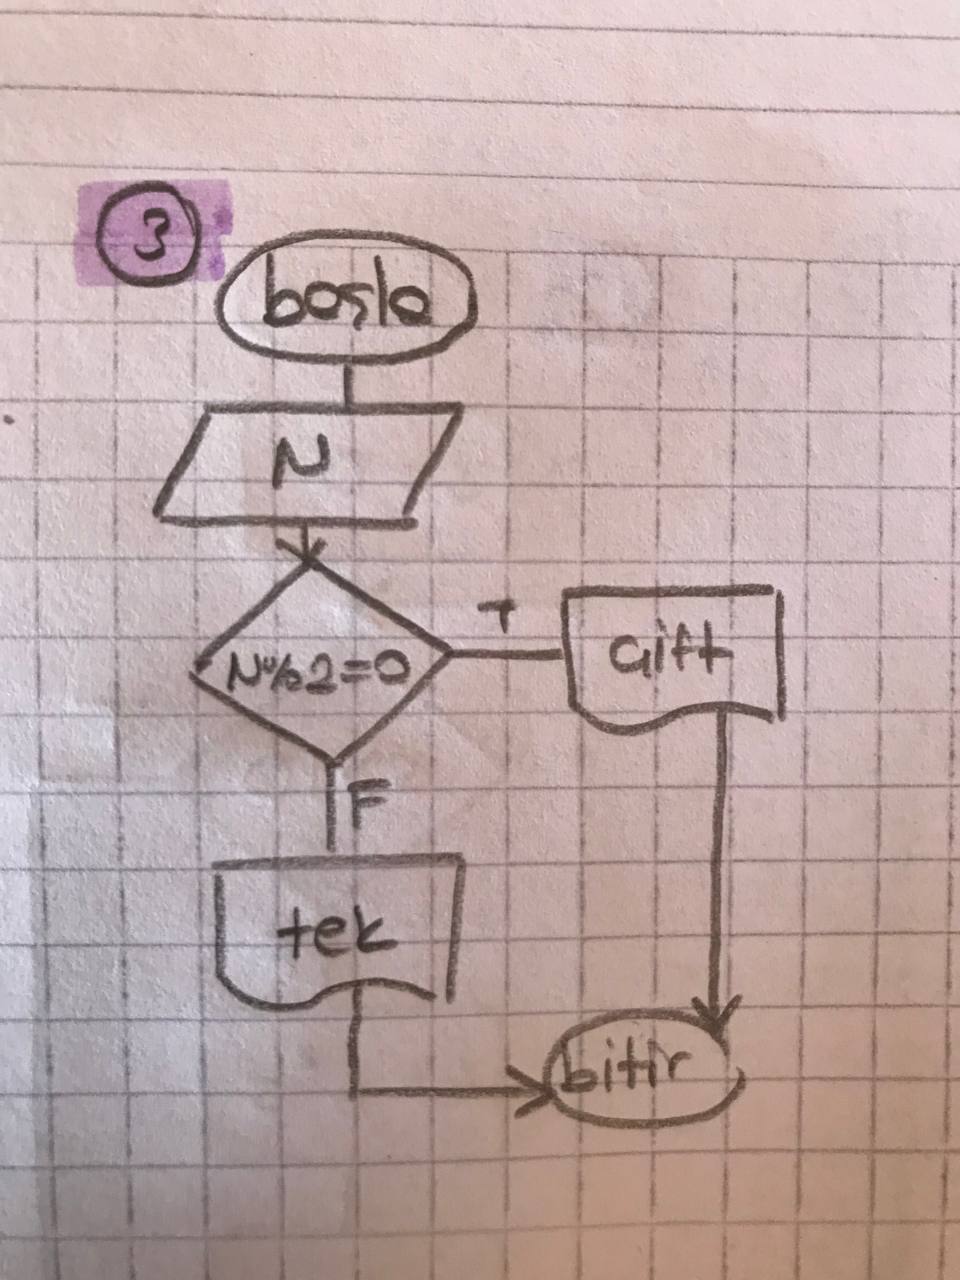 3
başla
N
N%2=0
T
Çift
F
tek
bitir